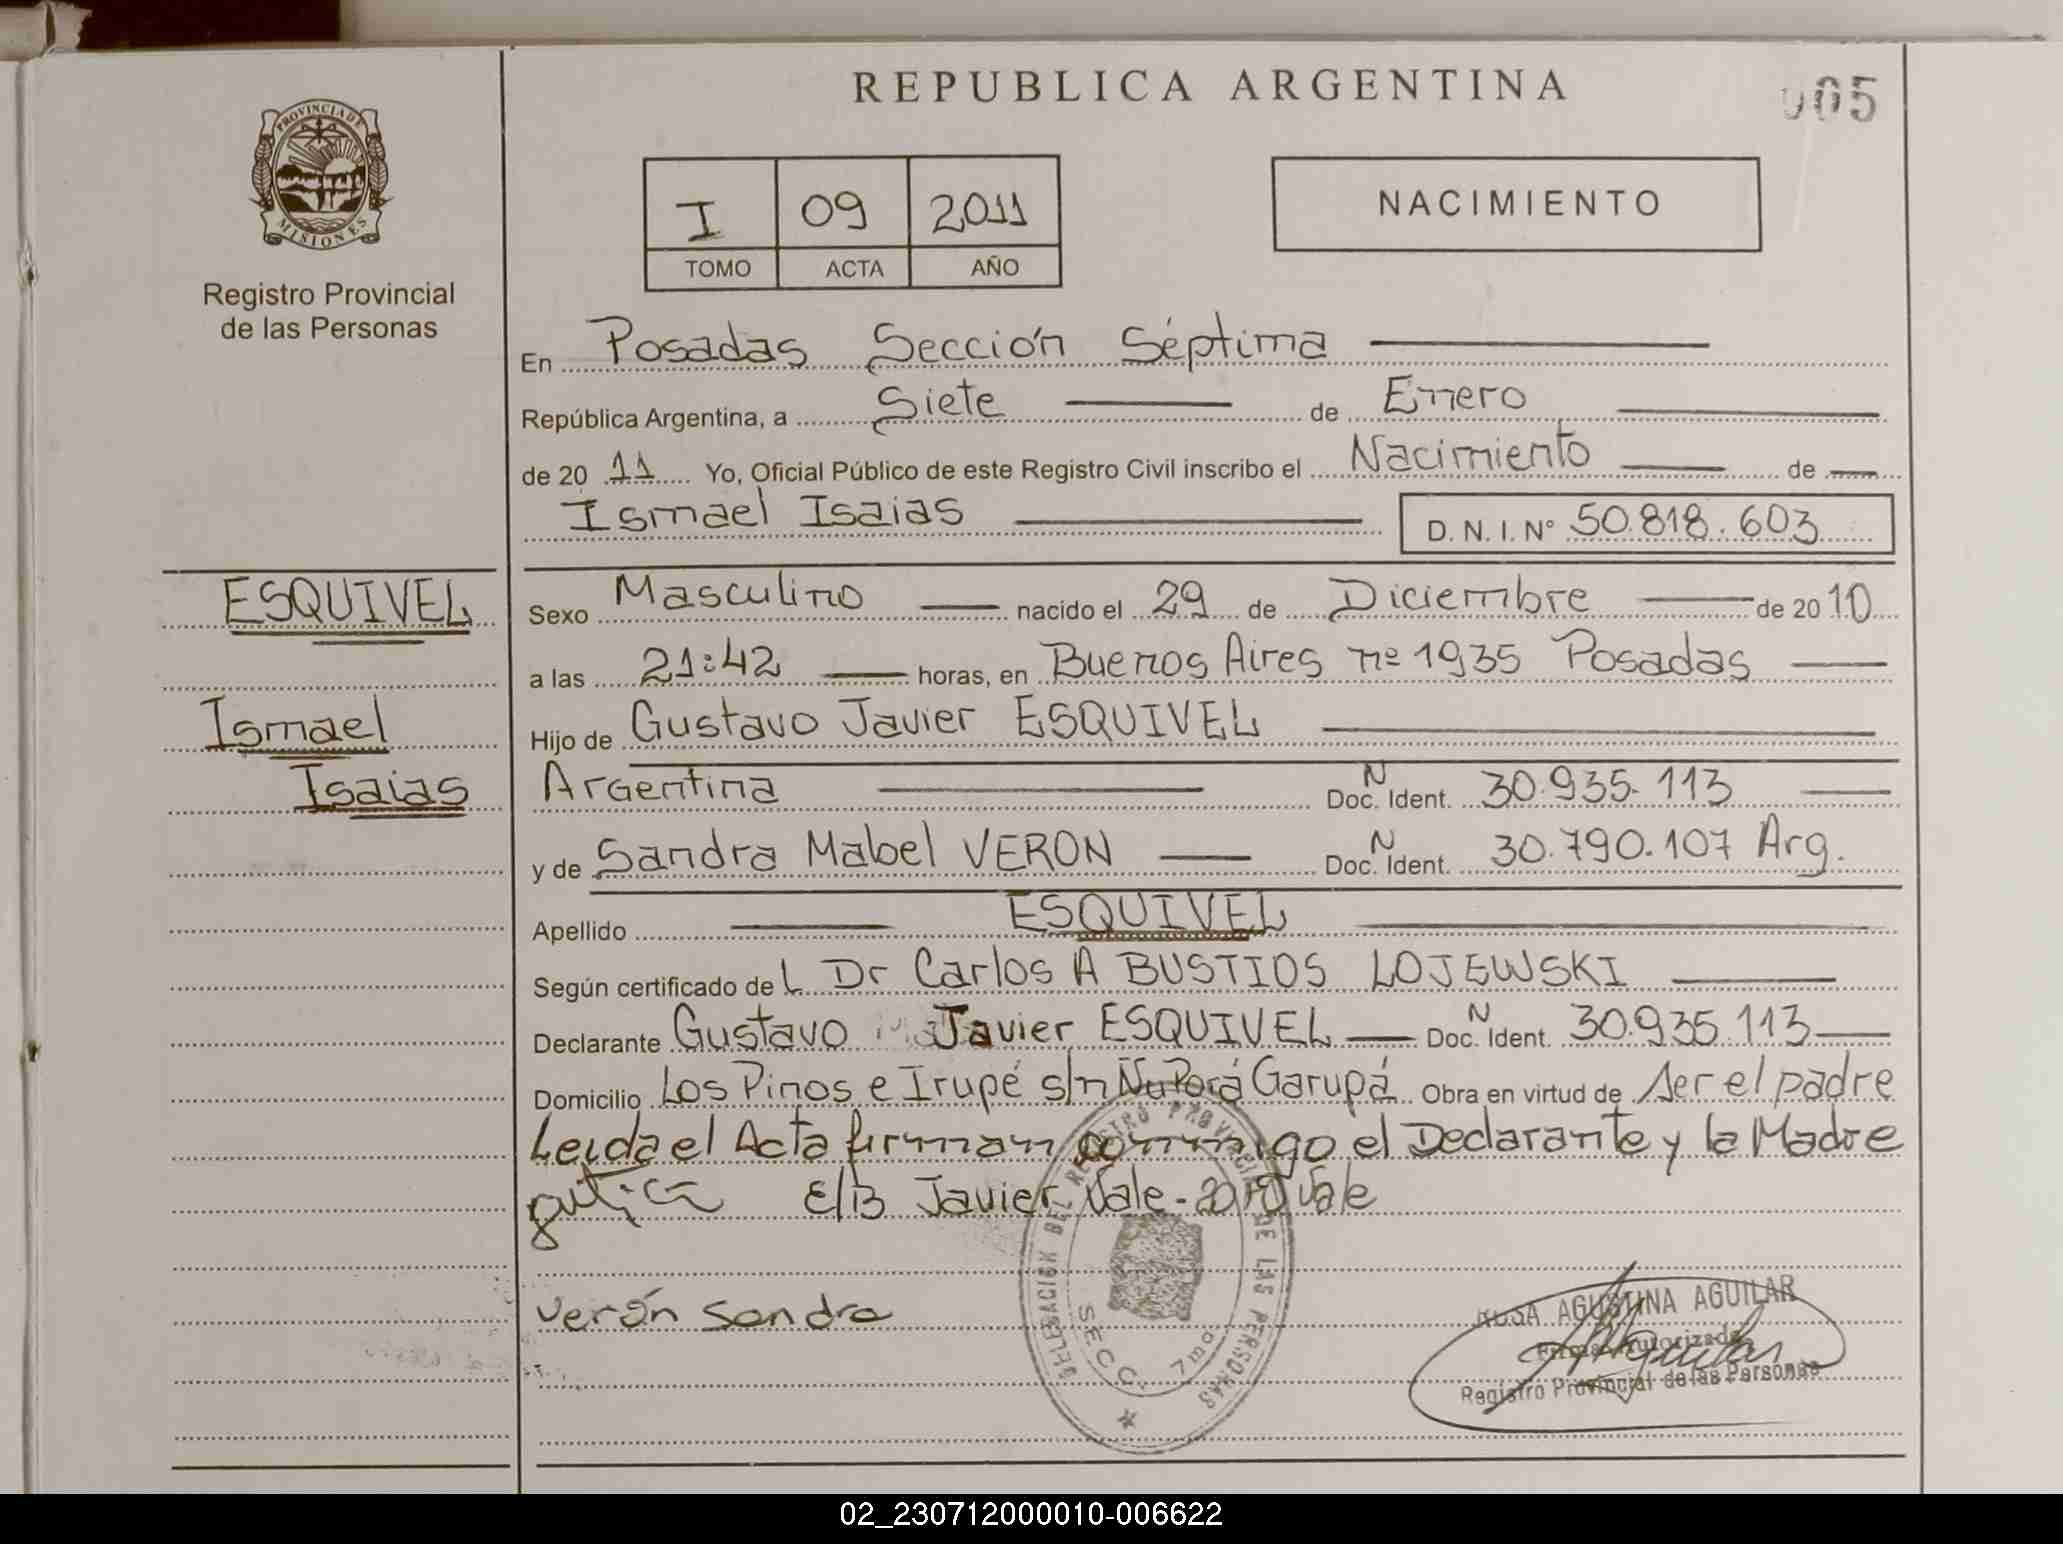 REPUBLICA ARGENTINA
005
PROVINCIA DE MISIONES
Registro Provincial
de las Personas
I 09 2011
TOMO ACTA AÑO
NACIMIENTO
En Posadas Sección Séptima
República Argentina, a Siete de Enero
de 20 11 Yo, Oficial Público de este Registro Civil inscribo el Nacimiento de
Ismael Isaias D. N. I. Nº 50.818.603
ESQUIVEL
Ismael
Isaias
Sexo Masculino nacido el 29 de Diciembre de 20 10
a las 21:42 horas, en Buenos Aires nº 1935 Posadas
Hijo de Gustavo Javier ESQUIVEL
Argentina Doc. N Ident. 30.935.113
y de Sandra Mabel VERON Doc. N Ident. 30.790.107 Arg.
Apellido ESQUIVEL
Según certificado de L Dr Carlos A BUSTIOS LOJEWSKI
Declarante Gustavo Javier ESQUIVEL Doc. N Ident. 30.935.113
Domicilio Los Pinos e Irupé s/n Ñu Porá Garupá Obra en virtud de ser el padre
Leida el Acta firman conmigo el Declarante y la Madre
E/B Javier Vale - 2010 Vale
Verón Sandra
DELEGACION DEL REGISTRO PROVINCIAL DE LAS PERSONAS
SECC. 7ma
ROSA AGUSTINA AGUILAR
Firma Autorizada
Registro Provincial de las Personas
02_230712000010-006622